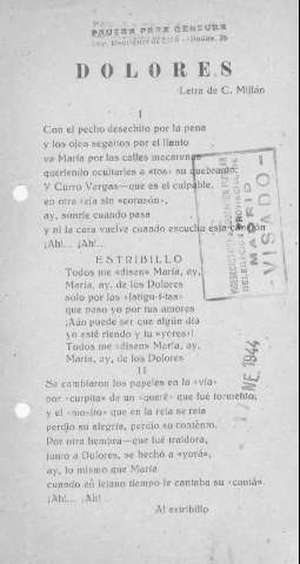 PRUEBA PARA CENSURA
DOLORES
Letra de C. Millán
I
Con el pecho desechito por la pena
y los ojos segaitos por el llanto
va María por las calles mecarenas
queriendo ocultarles a «tos» su quebranto.
Y Curro Vergas—que es el culpable,
en otra reia sin «corasón»,
ay, sonríe cuando pasa
y ni la cara vuelve cuando escucha esta canción
¡Ah!... ¡Ah!...
ESTRIBILLO
Todos me «disen» María, ay,
María, ay, de los Dolores
sólo por las «fatigu-i-tas»
que paso yo por tus amores
¡Aún puede ser que algún día
yo esté riendo y tu «yores»!
Todos me «disen» María, ay,
María, ay, de los Dolores
II
Se cambiaron los papeles en la «vía»
por «curpita» de un «queré» que fué tormento,
y el «mosito» que en la reia se reía
perdió su alegría, perdió su contento.
Por otra hembra—que fué traidora,
junto a Dolores, se hechó a «yorá»,
ay, lo mismo que María
cuando en lejano tiempo le cantaba su «contá».
¡Ah!... ¡Ah!
Al estribillo
MADRID
-VISADO-
ENE. 1944